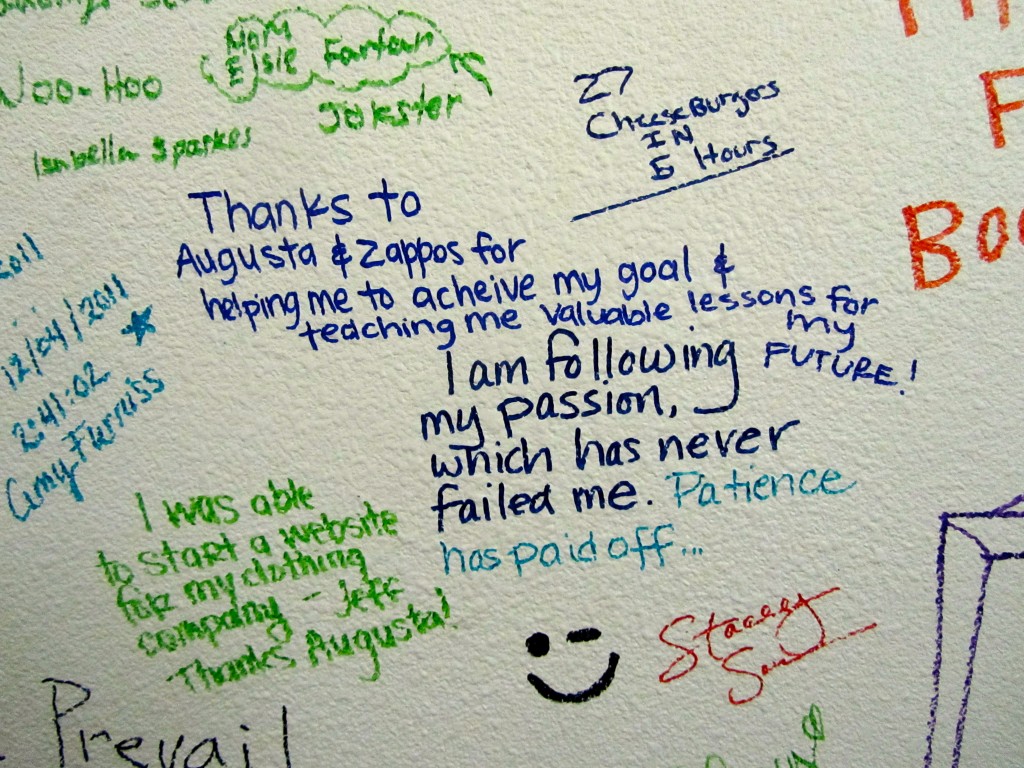 Mom
Elsie Fantom
Woo-Hoo
Jokster
Isabella Sparkes
27
CheeseBurgers
IN
5 Hours
Thanks to
Augusta & Zappos for
helping me to acheive my goal &
teaching me valuable lessons for
my
FUTURE!
2011
12/04/2011
2:41:02
Amy Furniss
I am following
my passion,
which has never
failed me. Patience
has paid off...
I was able
to start a website
for my clothing
company - Jeff
Thanks Augusta!
Stacey
Prevail
F
Boo